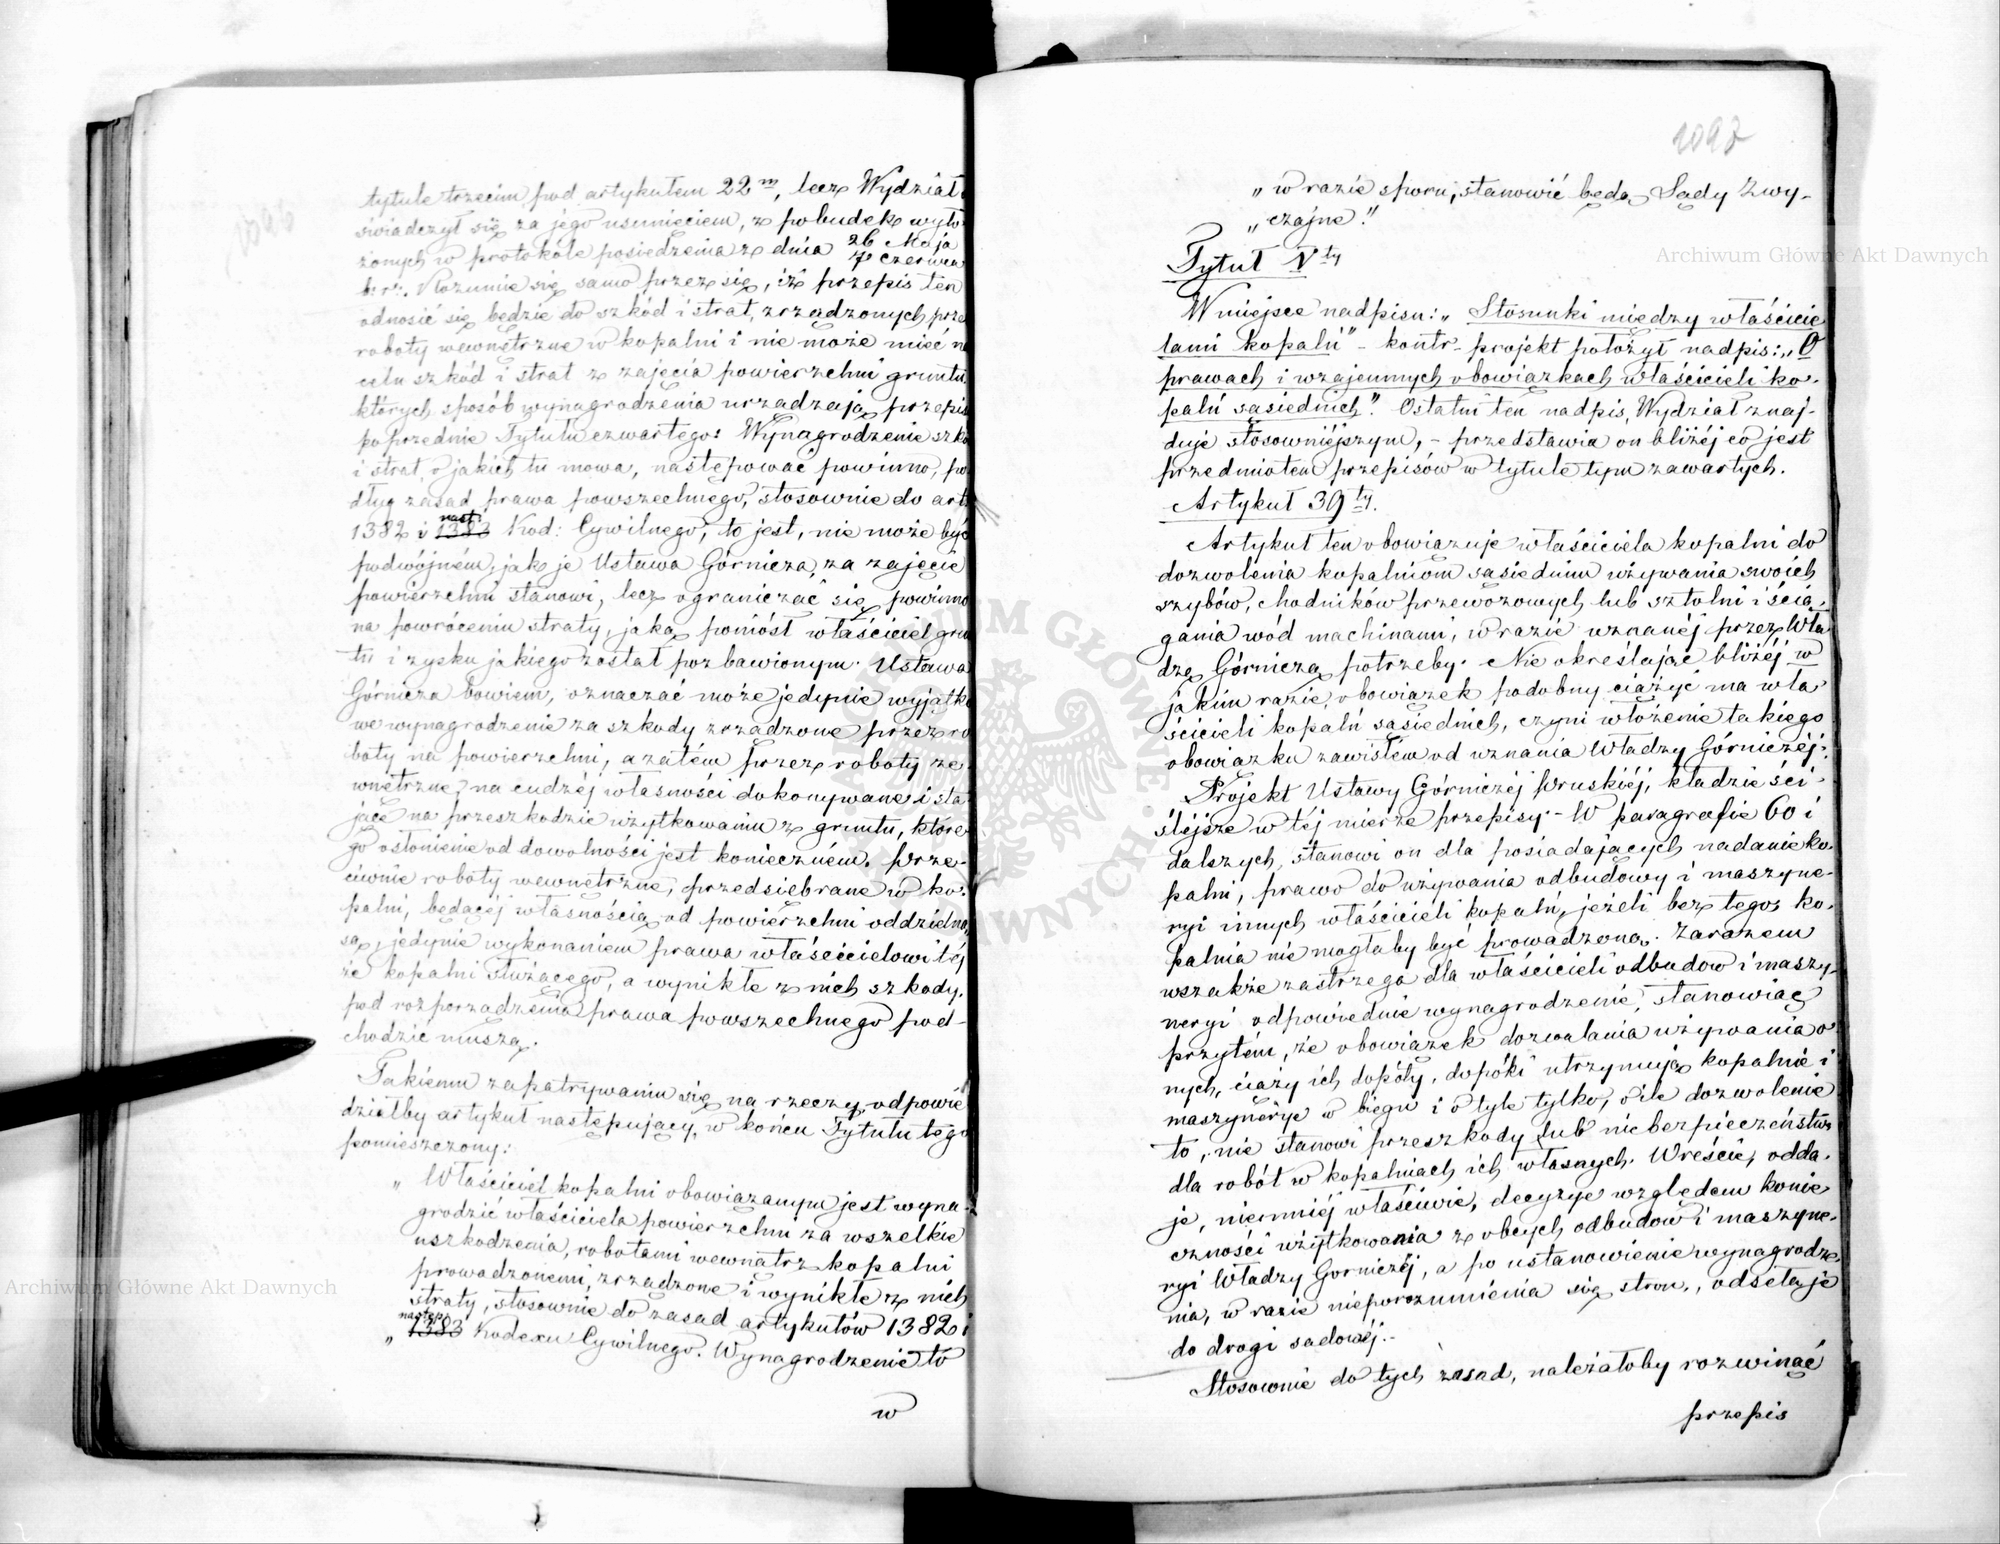 tytule trzecim pod artykułem 22m, lecz Wydział
świadczył się za jego usunięciem, z pobudek wyło-
żonych w protokóle posiedzenia z dnia 26 Maja
7 Czerwca
b.r. Rozumie się samo przez się, iż przepis ten
odnosić się będzie do szkód i strat, zrządzonych prze
roboty wewnętrzne w kopalni i nie może mieć na
celu szkód i strat z zajęcia powierzchni gruntu
których sposób wynagrodzenia urządzają przepis
poprzednie Tytułu czwartego: Wynagrodzenie szkó
i strat, o jakich tu mowa, następować powinno, po
dług zasad prawa powszechnego, stosownie do art:
nast:
1382 i 1383 Kod: Cywilnego; to jest, nie może być
podwójném, jak je Ustawa Górnicza, za zajęcie
powierzchni stanowi, lecz ograniczać się powinno
na powróceniu straty, jaką poniósł właściciel grun
tu i zysku jakiego został pozbawionym. Ustawa
Górnicza bowiem, oznaczać może jedynie wyjątko
we wynagrodzenie za szkody zrządzone przez ro
boty na powierzchni, a zatém przez roboty ze-
wnętrzne, na cudzéj własności dokonywane i sta
jące na przeszkodzie użytkowaniu z gruntu, które
go osłonienie od dowolności jest konieczném. Prze-
ciwnie roboty wewnętrzne, przedsiębrane w ko-
palni, będącéj własnością od powierzchni oddzielną,
są, jedynie wykonaniem prawa właścicielowi téj
że kopalni służącego, a wynikłe z nich szkody,
pod rozporządzenia prawa powszechnego pod-
chodzić muszą.
Takiemu zapatrywaniu się na rzeczy, odpowie
działby artykuł następujący, w końcu Tytułu tego
pomieszczony:
„ Właściciel kopalni obowiązanym jest wyna-
grodzić właściciela powierzchni za wszelkie
uszkodzenia, robotami wewnątrz kopalni
prowadzonemi, zrządzone i wynikłe z nich
straty, stosownie do zasad artykułów 1382 i
następ:
„ 1383 Kodexu Cywilnego. Wynagrodzenie to
w
1097
„ w razie sporu, stanowić będą Sądy Zwy-
„ czajne."
Tytuł Vty
W miejsce nadpisu: „Stosunki między właścicie
lami kopalń" - kontr-projekt położył nadpis: „O
prawach i wzajemnych obowiązkach właścicieli ko-
palń sąsiednich". Ostatni ten nadpis, Wydział znaj-
duje stosowniéjszym, - przedstawia on bliżéj co jest
przedmiotem przepisów w tytule tym zawartych.
Artykuł 39ty.
Artykuł ten obowiązuje właściciela kopalni do
dozwolenia kopalniom sąsiednim używania swoich
szybów, chodników przewozowych lub sztolni i ścią-
gania wód machinami, w razie uznanéj przez Wła
dzę Górniczą potrzeby. Nie określając bliżéj w
jakim razie, obowiązek podobny ciążyć ma wła
ścicieli kopalń sąsiednich, czyni włożenie takiego
obowiązku zawisłem od uznania Władzy Górniczéj.
Projekt Ustawy Górniczéj Pruskiéj, kładzie ści-
ślejsze w téj mierze przepisy - W paragrafie 60 i
dalszych, stanowi on dla posiadających nadanie ko-
palni, prawo do używania odbudowy i maszyne-
ryi innych właścicieli kopalń, jeżeli bez tego ko-
palnia nie mogłaby być prowadzoną. Zarazem
wszakże zastrzega dla właścicieli odbudow i maszy-
neryi odpowiednie wynagrodzenie, stanowiąc
przytém, że obowiązek dozwalania używania o-
nych, ciąży ich dopóty, dopóki utrzymują kopalnie i
maszynerye w biegu i o tyle tylko, o ile dozwolenie
to, nie stanowi przeszkody lub niebezpieczeństw
dla robót w kopalniach ich własnych. Wreście, odda-
je, niemniéj właściwie, decyzye względem konie
czności użytkowania z obcych odbudow i maszyne-
ryi Władzy Górniczéj, a po ustanowienie wynagrodze-
nia, w razie nieporozumienia się stron, odseła je
do drogi sądowéj.-
Stosownie do tych zasad, należałoby rozwinąć
przepis
Archiwum Główne Akt Dawnych
Archiwum Główne Akt Dawnych